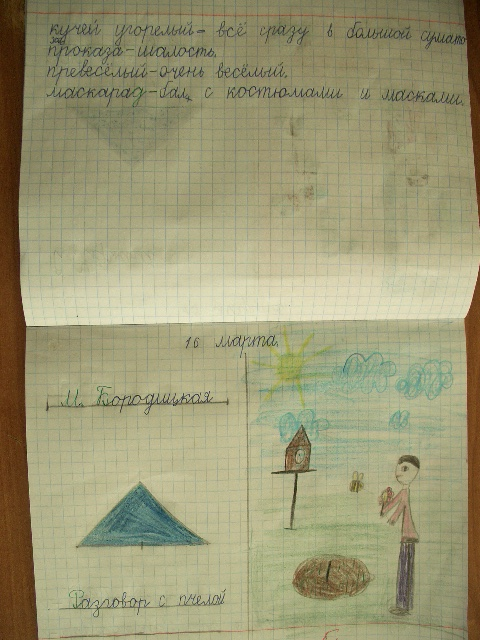 кучей угорелый - всё сразу в большой сумато
проказа - шалость.
превесёлый - очень весёлый.
маскарад - бал, с костюмами и масками.
16 марта.
М. Бородицкая
Разговор с пчелой